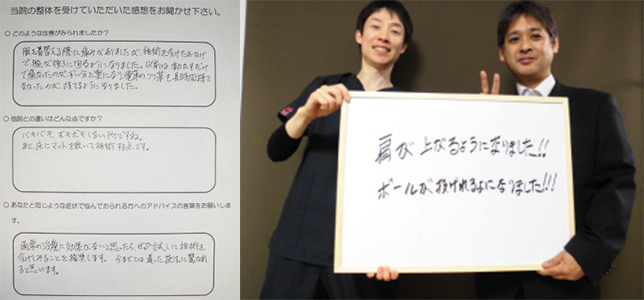 当院の整体を受けていただいた感想をお聞かせ下さい。
○ どのような改善がみられましたか？
服を着替える際に痛みがありましたが、施術を受けたおかげ
で腕が後ろに回るようになりました。以前は動かすだけ
で痛かったのが、ずい分と楽になり、電車のつり革も長時間持て
なかったのが、持てるようになりました。
○ 他院との違いはどんな点ですか？
バキバキ、ボキボキしない所ですね。
あと、床にマットを敷いて施術する点です。
○ あなたと同じような症状で悩んでおられる方へのアドバイスの言葉をお願いしま
す。
通常の治療に効果がないと思ったら、ぜひ試しに施術を
受けてみることを推奨します。今までとは違った技法に驚かれ
ると思います。
肩が上がるようになりました!!
ボールが投げれるよになりました!!!